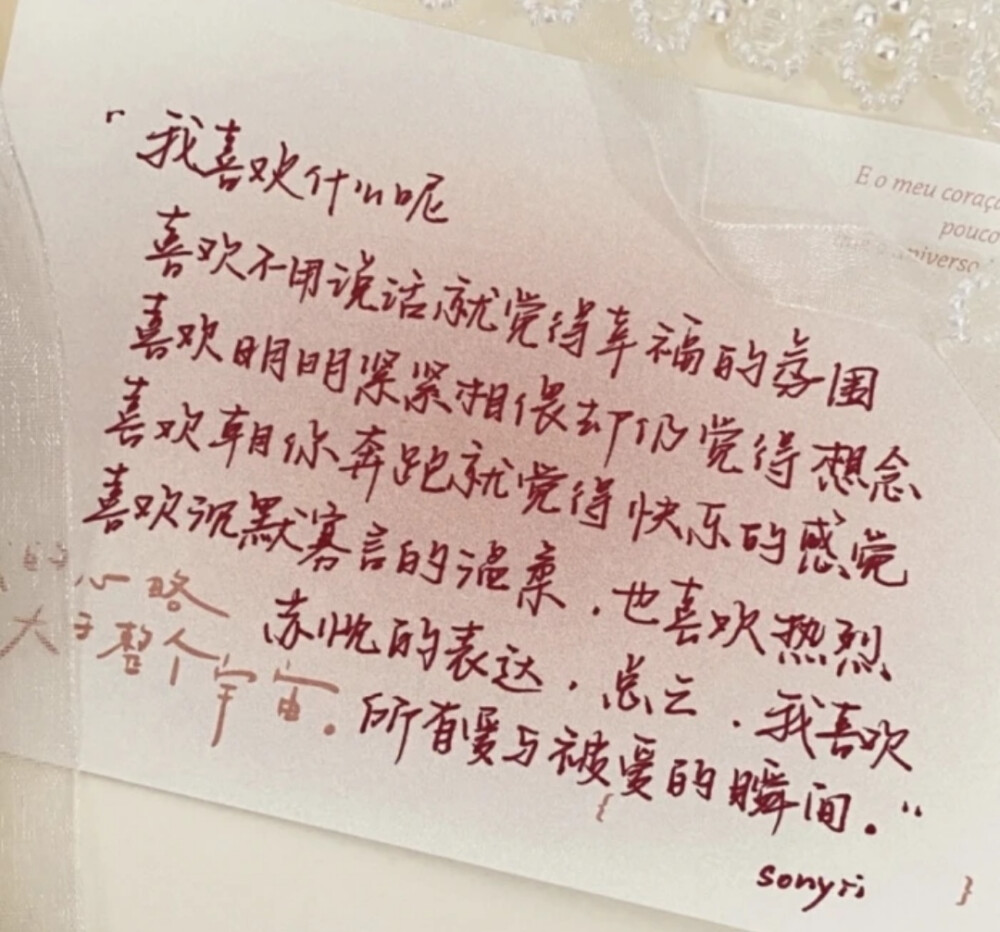 「我喜欢什么呢
喜欢不用说话就觉得幸福的氛围
喜欢明明紧紧相偎却仍觉得想念
喜欢朝你奔跑就觉得快乐的感觉
喜欢沉默寡言的温柔，也喜欢热烈
赤忱的表达，总云，我喜欢
所有爱与被爱的瞬间。“
sonyri
心略
大于整个宇宙。
E o meu coraçã
pouco
que o universo
{ }